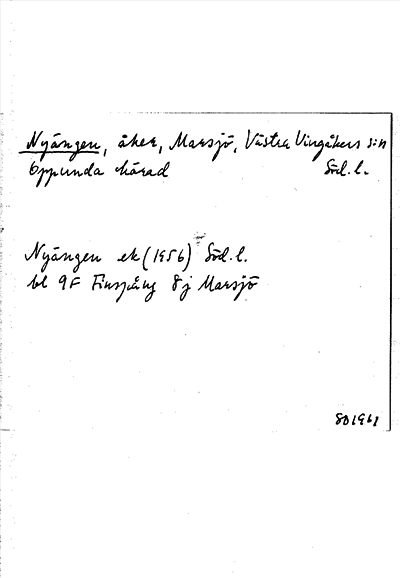 Nyängen, åker, Marsjö, Västra Vingåkers s:n
Oppunda härad Söd. l.
Nyängen ek (1956) Söd. l.
bl 9F Finspång 8j Marsjö
SD 1961